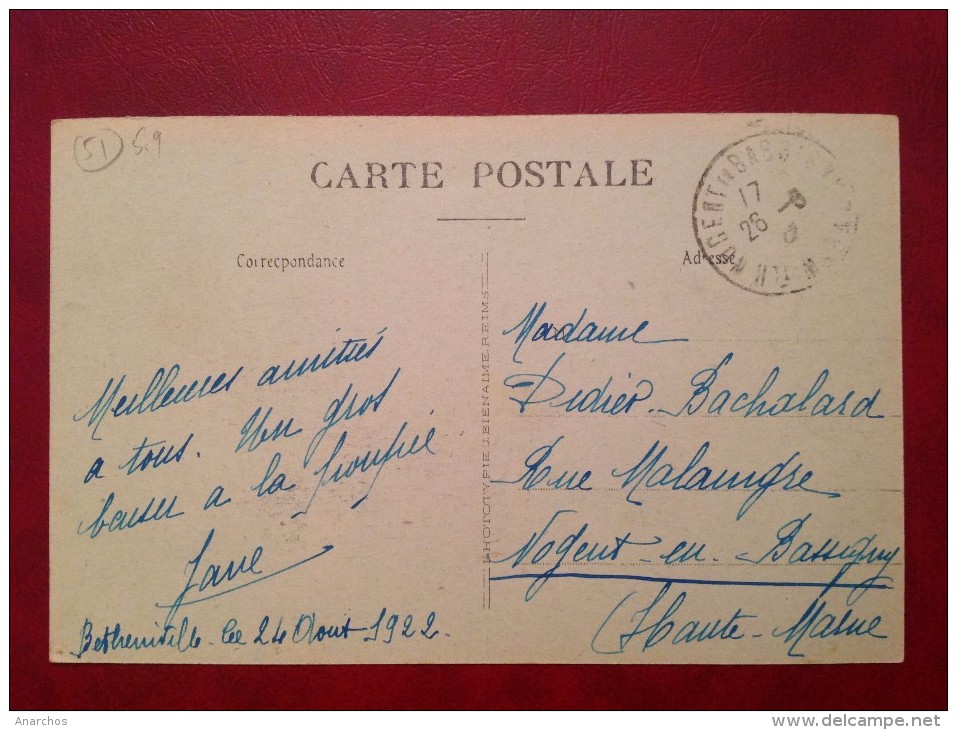 51 S.9
CARTE POSTALE
Correspondance
Adresse
Meilleures amitiés
a tous. Un gros
baiser a la
Jane
Betheniville le 24 Aout 1922.
PHOTOTYPIE J. BIENAIMÉ, REIMS
Madame
Didier-Bachalard
Rue
Nogent-en-Bassigny
(Haute-Marne
NOGENT-EN-BASSIGNY
17
26
Hte MARNE
Anarchos
delcampe.net